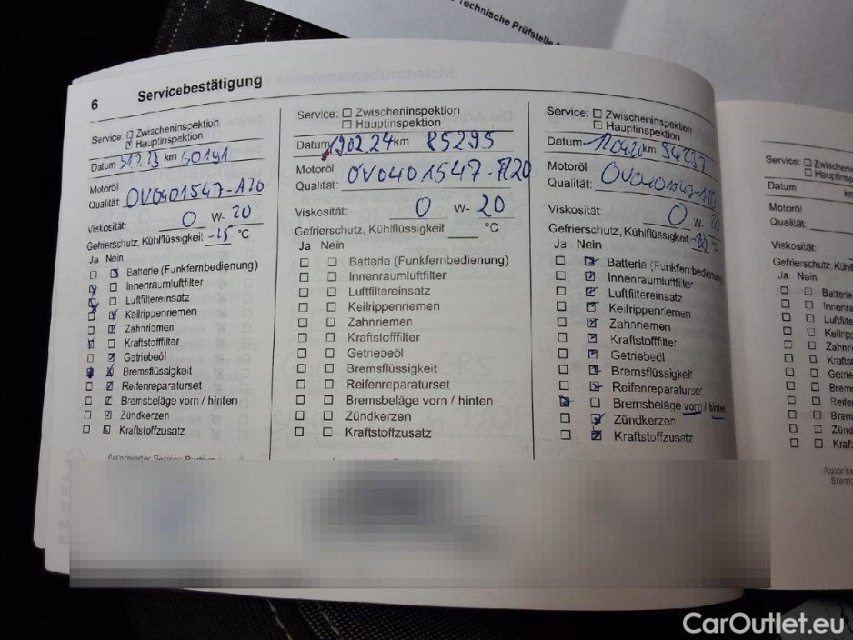 Technische Prüfstelle
6 Servicebestätigung
Service: Zwischeninspektion
Hauptinspektion
Datum km
Motoröl
Qualität: OV0401547-A20
Viskosität: 0 W- 20
Gefrierschutz, Kühlflüssigkeit -25 °C
Ja Nein
Batterie (Funkfernbedienung)
Innenraumluftfilter
Luftfiltereinsatz
Keilrippenriemen
Zahnriemen
Kraftstofffilter
Getriebeöl
Bremsflüssigkeit
Reifenreparaturset
Bremsbeläge vorn / hinten
Zündkerzen
Kraftstoffzusatz
Autorisierter Service Partner
Service: Zwischeninspektion
Hauptinspektion
Datum 190224 km 85295
Motoröl
Qualität: OV0401547-A20
Viskosität: 0 W- 20
Gefrierschutz, Kühlflüssigkeit °C
Ja Nein
Batterie (Funkfernbedienung)
Innenraumluftfilter
Luftfiltereinsatz
Keilrippenriemen
Zahnriemen
Kraftstofffilter
Getriebeöl
Bremsflüssigkeit
Reifenreparaturset
Bremsbeläge vorn / hinten
Zündkerzen
Kraftstoffzusatz
Service: Zwischeninspektion
Hauptinspektion
Datum km
Motoröl
Qualität:
Viskosität: 0 W-
Gefrierschutz, Kühlflüssigkeit °C
Ja Nein
Batterie (Funkfernbedienung
Innenraumluftfilter
Luftfiltereinsatz
Keilrippenriemen
Zahnriemen
Kraftstofffilter
Getriebeöl
Bremsflüssigkeit
Reifenreparaturset
Bremsbeläge vorn / hinten
Zündkerzen
Kraftstoffzusatz
Service: Zwischenin
Hauptinspe
Datum km
Motoröl
Qualität:
Viskosität:
Gefrierschutz, Kühl
Ja Nein
Batterie
Innenra
Luftfilte
Keilripp
Zahnri
Krafts
Getrie
Brems
Reife
Brem
Zünd
Kraf
CarOutlet.eu